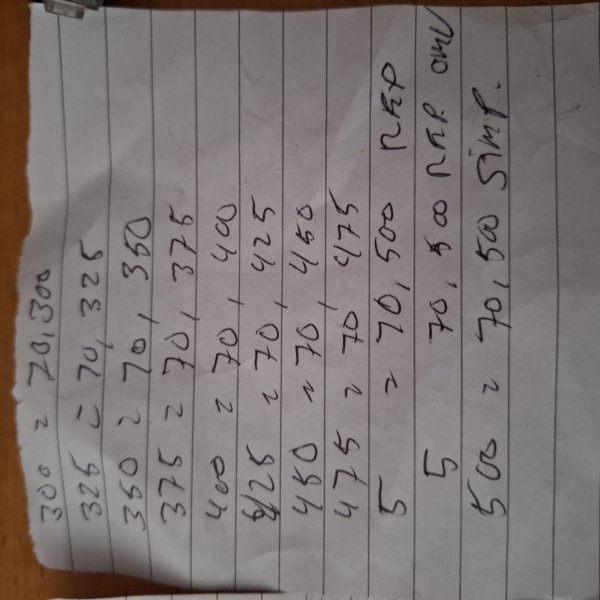 300 = 70,300
325 = 70,325
350 = 70,350
375 = 70,375
400 = 70,400
425 = 70,425
450 = 70,450
475 = 70,475
5 = 70,500
5 70,500
500 = 70,500 Simp.